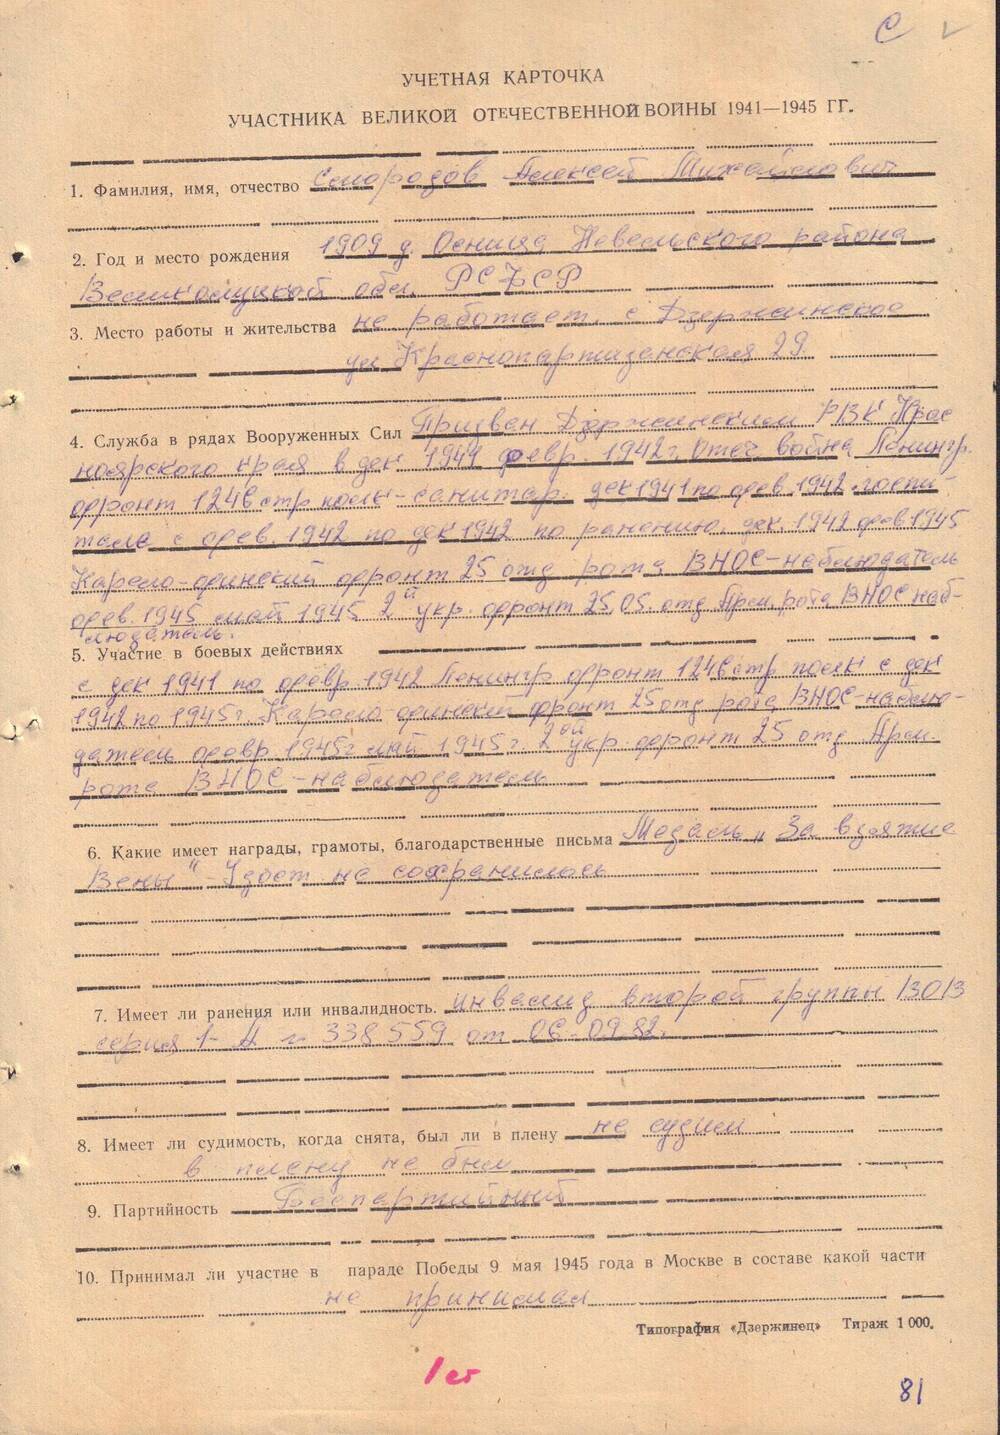 С
УЧЕТНАЯ КАРТОЧКА
УЧАСТНИКА ВЕЛИКОЙ ОТЕЧЕСТВЕННОЙ ВОЙНЫ 1941—1945 ГГ.
1. Фамилия, имя, отчество Алексей Михайлович
2. Год и место рождения 1909 д. Осница Невельского района
Великолукской обл. РСФСР
3. Место работы и жительства не работает. с Дзержинское
ул Краснопартизанская 29.
4. Служба в рядах Вооруженных Сил Призван Дзержинским РВК Крас
ноярского края в дек 1941 февр. 1942 г. Отеч. война Ленингр.
фронт 1246 стр полк-санитар. дек 1941 по фев. 1942. госпи-
тале с фев. 1942 по дек 1942 по ранению. дек. 1942 фев 1945
Карело-финский фронт 25 отд рота ВНОС-наблюдатель
фев. 1945 май 1945 2й укр. фронт 25.05. отд Арм. рота ВНОС наб-
людатель.
5. Участие в боевых действиях
с дек 1941 по февр 1942 Ленингр фронт 1246 стр полк с дек
1942 по 1945 г. Карело-финский фронт 25 отд рота ВНОС-наблю-
датель февр. 1945 г май 1945 г. 2ой укр фронт 25 отд Арм.
рота ВНОС-наблюдатель
6. Какие имеет награды, грамоты, благодарственные письма Медаль „За взятие
Вены" Удост. не сохранилось
7. Имеет ли ранения или инвалидность. инвалид второй группы
серия 1-А № 338559 от 06-09 82.
8. Имеет ли судимость, когда снята, был ли в плену не судим
в плену не был
9. Партийность Беспартийный
10. Принимал ли участие в параде Победы 9 мая 1945 года в Москве в составе какой части
не принимал
Типография «Дзержинец» Тираж 1 000.
1 ст
81